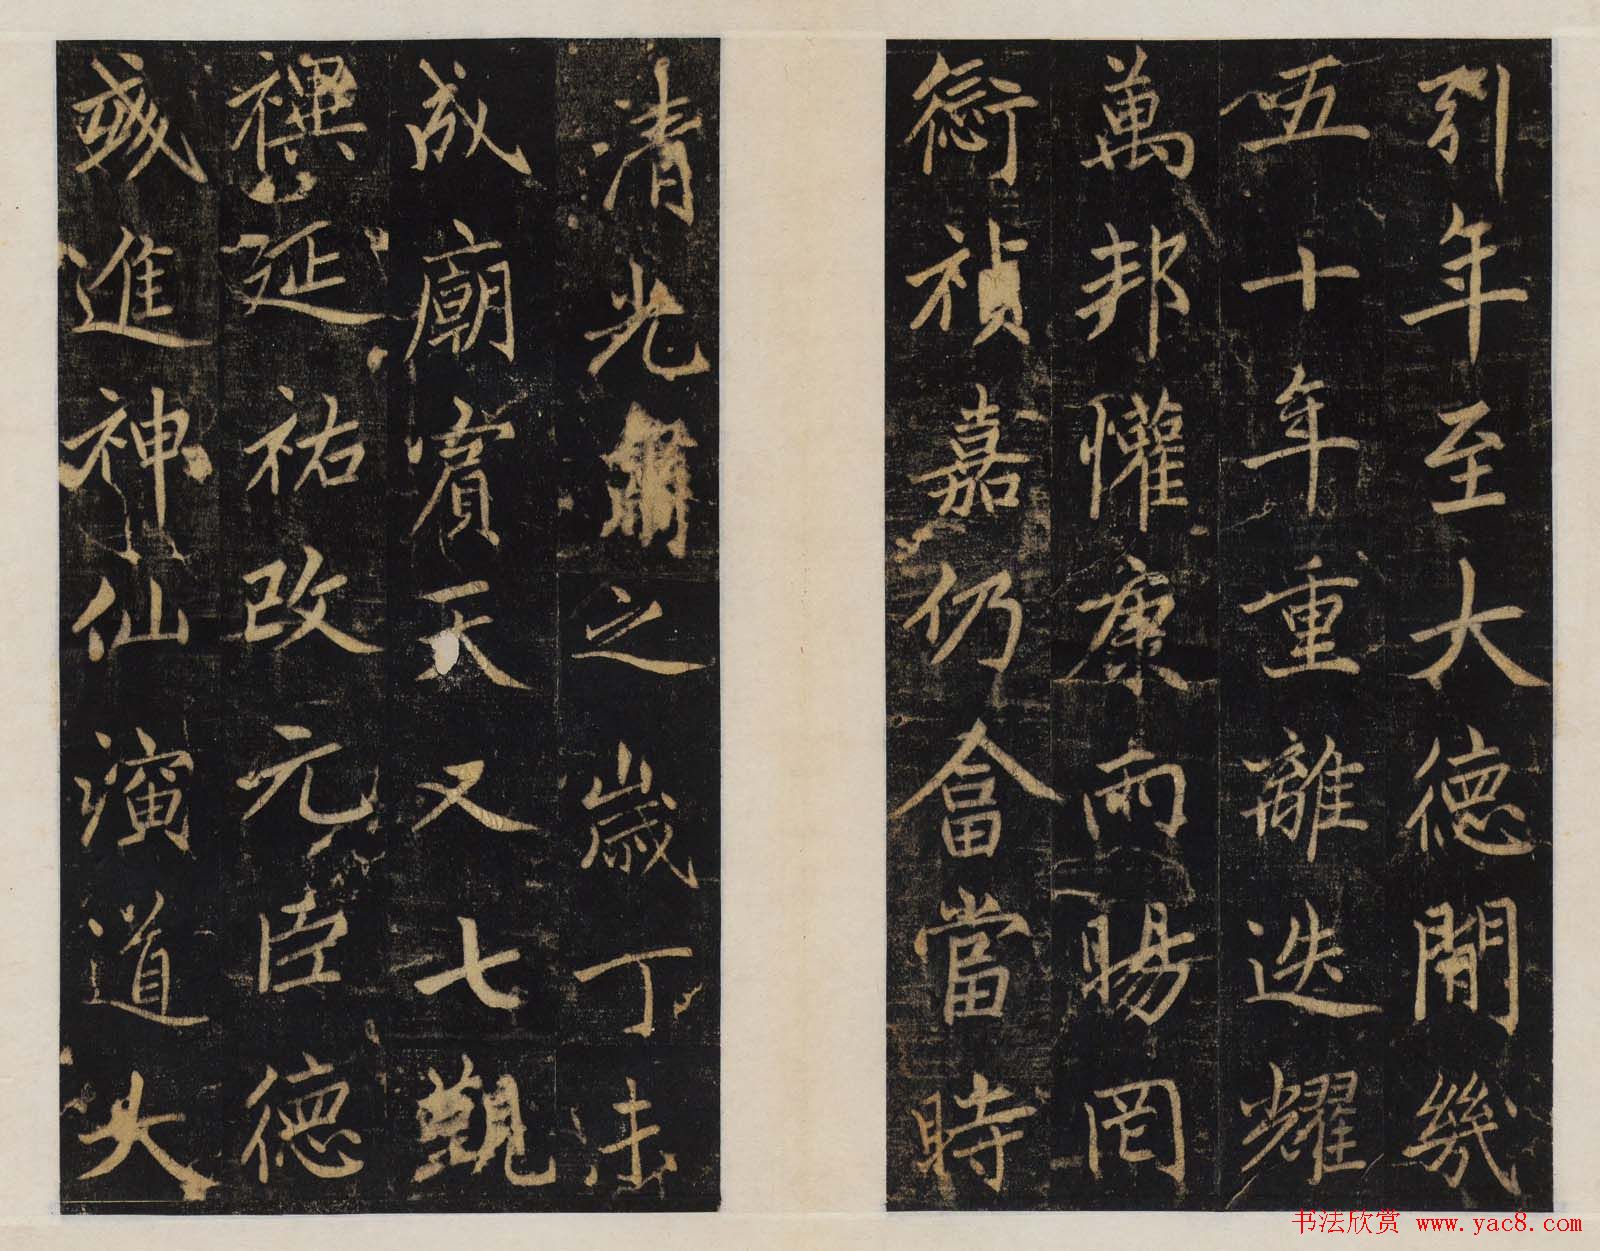 引年至大德閒幾
五十年重離迭耀
萬邦懽康雨暘罔
愆禎嘉仍畣當時
清光爾之歲丁未
成廟賓天又七觀
禩延祐改元臣德
彧進神仙演道大
书法欣赏 www.yac8.com